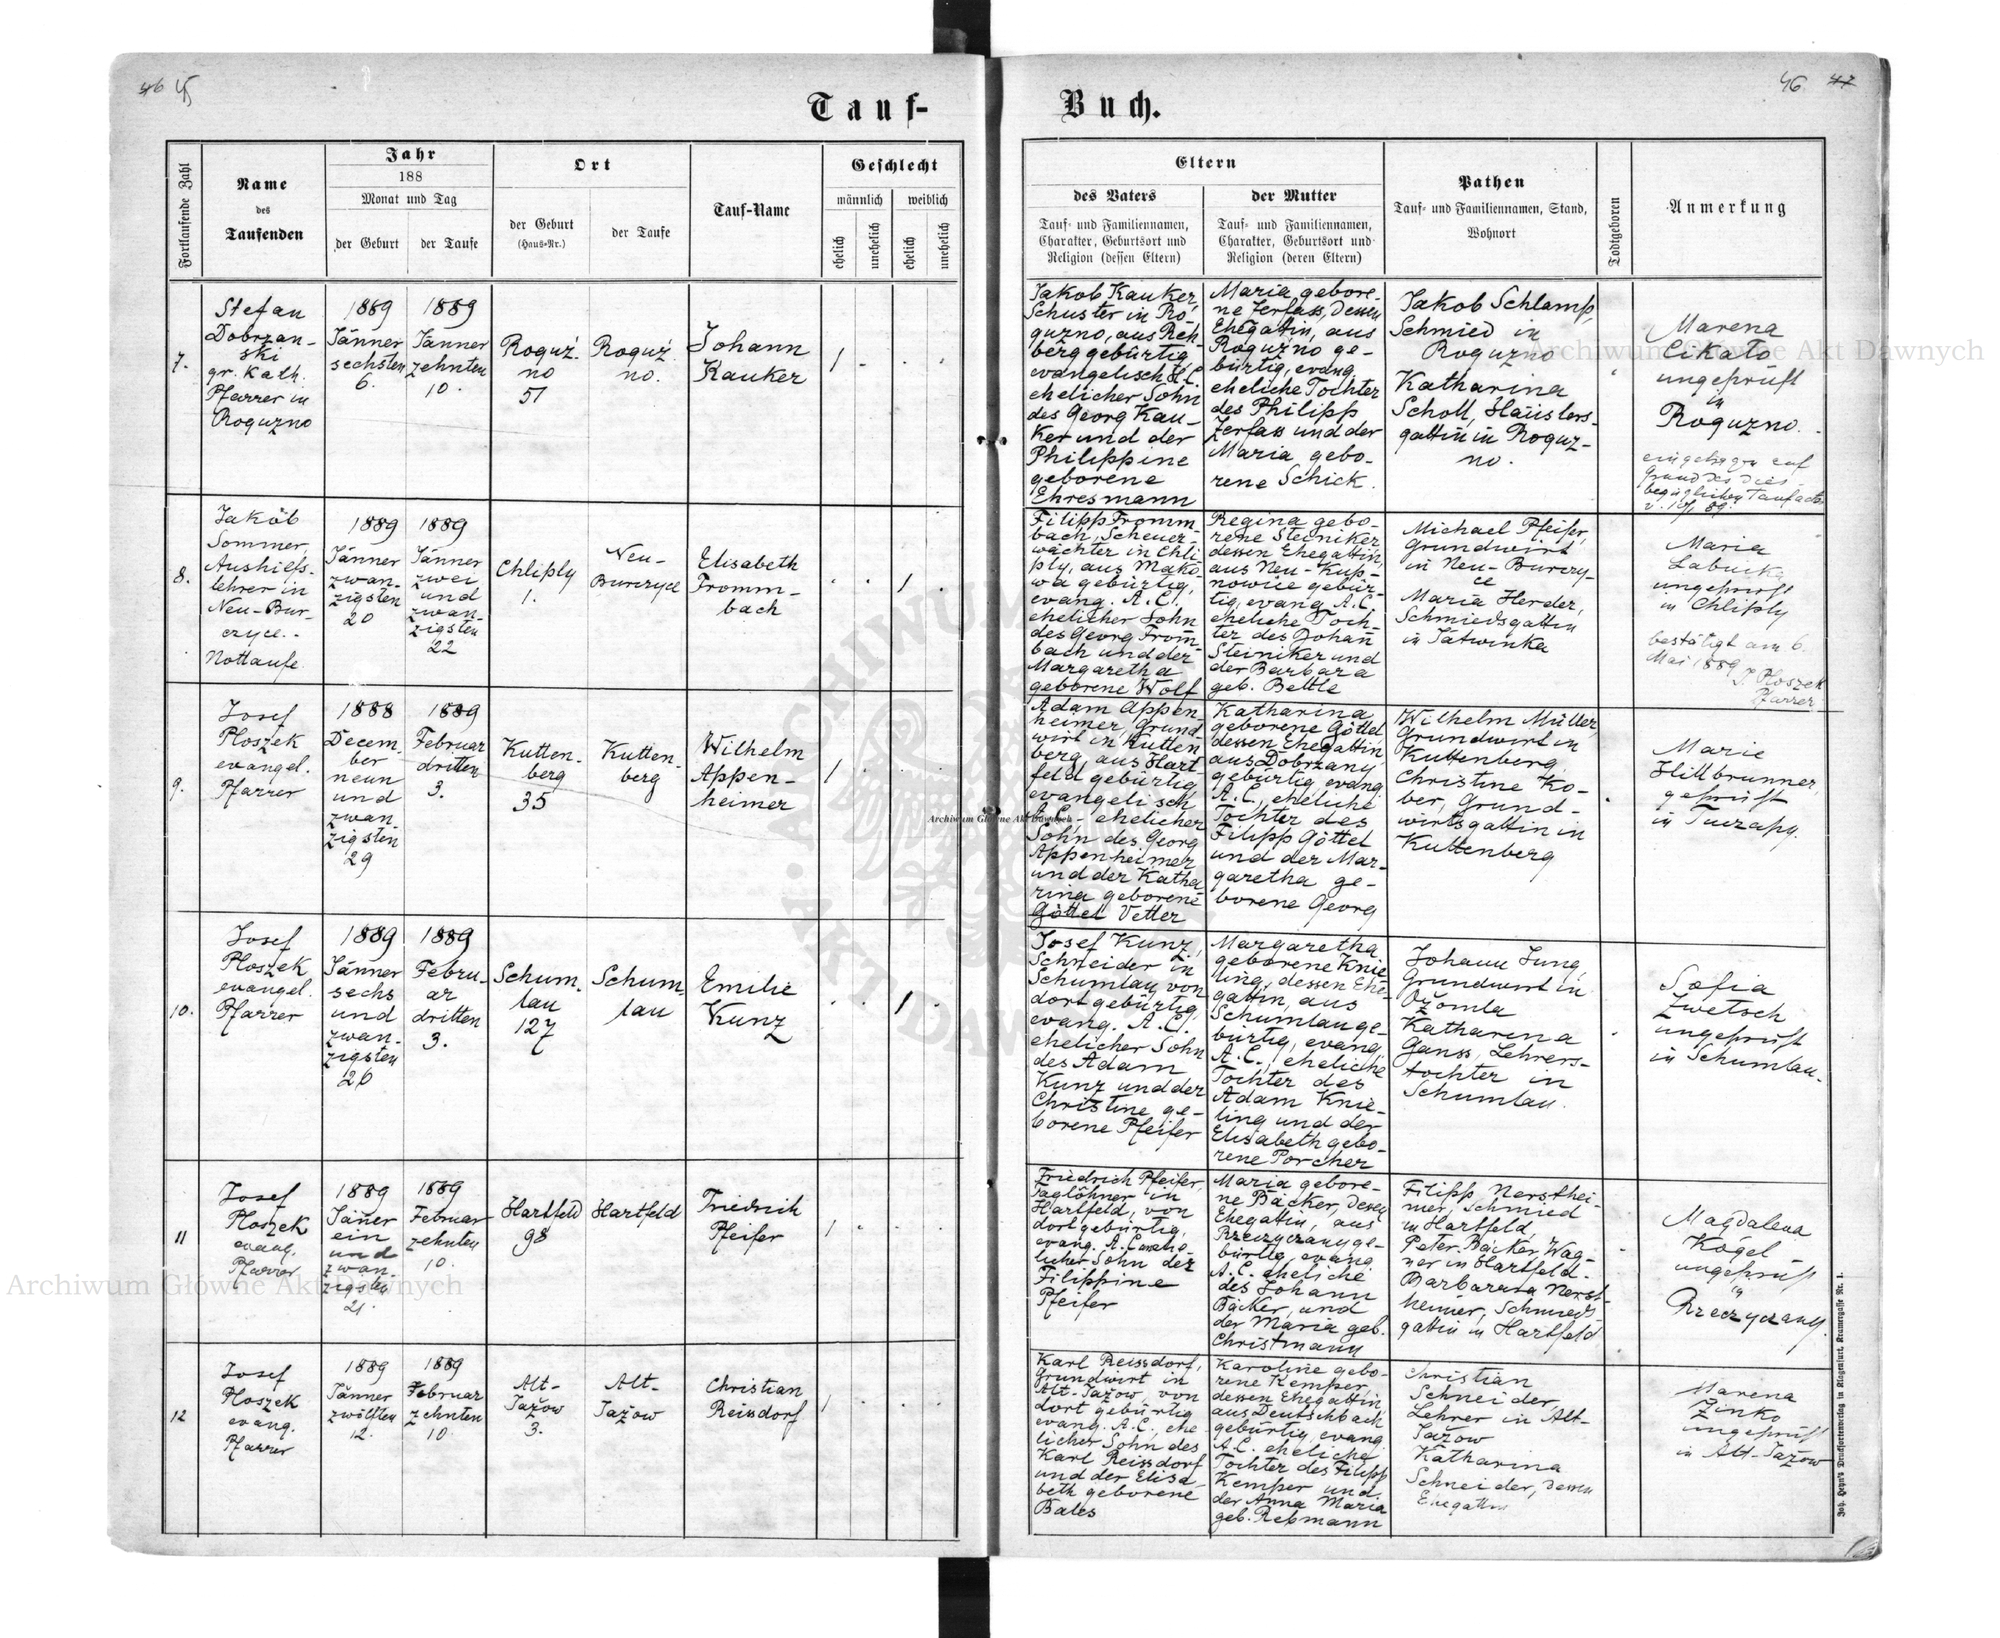 46 45
Tauf-
Fortlaufende Zahl
Name
des
Taufenden
Jahr
188
Monat und Tag
der Geburt
der Taufe
Ort
der Geburt
(Haus-Nr.)
der Taufe
Tauf-Name
Geschlecht
männlich
weiblich
ehelich
unehelich
ehelich
unehelich
46 47
Buch.
Eltern
des Vaters
Tauf- und Familiennamen,
Charakter, Geburtsort und
Religion (dessen Eltern)
der Mutter
Tauf- und Familiennamen,
Charakter, Geburtsort und
Religion (deren Eltern)
Pathen
Tauf- und Familiennamen, Stand,
Wohnort
Todtgeboren
Anmerkung
7.
Stefan
Dobrzan-
ski
gr. Kath.
Pfarrer in
Roguzno
1889
Jänner
sechsten
6.
1889
Jänner
zehnten
10.
Roguź
no
51
Roguź
no.
Johann
Kauker
1
Jakob Kauker,
Schuster in Ro
guzno, aus Reh
berg gebürtig,
evangelisch H.C.
ehelicher Sohn
des Georg Kau-
ker und der
Philippine
geborene
Ehresmann
Maria gebore-
ne Zerfass, dessen
Ehegattin, aus
Roguźno ge-
bürtig, evang.
eheliche Tochter
des Philipp
Zerfass und der
Maria gebo-
rene Schick.
Jakob Schlamp,
Schmied in
Roguzno
Katharina
Scholl, Häuslers-
gattin in Roguz-
no.
Marena
Cikato
ungeprüft
in
Roguzno.
eingetragen auf
Grund des dies-
bezüglichen Taufacts
8.
Jakob
Sommer,
Aushilfs-
lehrer in
Neu-Bur-
czyce.
Nottaufe
1889
Jänner
zwan-
zigsten
20
1889
Jänner
zwei
und
zwan-
zigsten
22
Chliply
1.
Neu-
Burczyce
Elisabeth
Fromm-
bach
1
Filipp Fromm
bach, Scheuer-
wächter in Chli
ply, aus Mako-
wa gebürtig,
evang. A.C.,
ehelicher Sohn
des Georg From-
bach und der
Margaretha
geborene Wolf
Regina gebo-
rene Steiniker
dessen Ehegattin,
aus Neu-Kup-
nowice gebür-
tig, evang. A.C.
eheliche Toch-
ter des Johan̄
Steiniker und
der Barbara
geb. Bettle
Michael Pfeifer,
Grundwirt
in Neu-Burczy-
ce
Maria Herder,
Schmiedsgattin
in Tatwinka
Maria
ungeprüft
in Chliply
bestätigt am 6.
Mai 1889
J. Ploszek
Pfarrer
9.
Josef
Ploszek
evangel.
Pfarrer
1888
Decem-
ber
neun
und
zwan
zigsten
29
1889
Februar
dritten
3.
Kutten-
berg
35
Kutten-
berg
Wilhelm
Appen-
heimer
1
Adam Appen-
heimer, Grund-
wirt in Kutten
berg, aus Hart
feld gebürtig
evangelisch
A.C., ehelicher
Sohn des Georg
Appenheimer
und der Katha
rina geborene
Göttel Vetter
Katharina
geborene Göttel
dessen Ehegattin
aus Dobrzany
gebürtig evang.
A.C., eheliche
Tochter des
Filipp Göttel
und der Mar-
garetha ge-
borene Georg
Wilhelm Müller,
Grundwirt in
Kuttenberg.
Christine Ko-
ber, Grund-
wirtsgattin in
Kuttenberg
Marie
Hillbrunner,
geprüft
in Tuczapy.
10.
Josef
Ploszek
evangel.
Pfarrer
1889
Jänner
sechs
und
zwan-
zigsten
26
1889
Febru-
ar
dritten
3.
Schum-
lau
127
Schum-
lau
Emilie
Kunz
1
Josef Kunz,
Schneider in
Schumlau, von
dort gebürtig,
evang. A.C.
ehelicher Sohn
des Adam
Kunz und der
Christine ge-
borene Pfeifer
Margaretha
geborene Knie
ling, dessen Ehe-
gattin, aus
Schumlau ge-
bürtig, evang.
A.C., eheliche
Tochter des
Adam Knie-
ling und der
Elisabeth gebo-
rene Porcher
Johann Jung,
Grundwirt in
Ožomla
Katharina
Ganss, Lehrers-
tochter in
Schumlau.
Sofia
Zwetsch
ungeprüft
in Schumlau.
11
Josef
Ploszek
evang.
Pfarrer
1889
Jän̄er
ein
und
zwan-
zigsten
21.
1889
Februar
zehnten
10.
Hartfeld
98
Hartfeld
Friedrich
Pfeifer
1
Friedrich Pfeifer,
Taglöhner in
Hartfeld, von
dort gebürtig,
evang. A.C. unehe-
licher Sohn der
Filippine
Pfeifer
Maria gebore-
ne Bäcker, dessen
Ehegattin, aus
Rzeczyczany ge-
bürtig, evang.
A.C. eheliche
des Johann
Bäcker, und
der Maria geb.
Christmann
Filipp Nersthei-
mer, Schmied
in Hartfeld
Peter Bäcker, Wag-
ner in Hartfeld.
Barbara Nerst-
heimer, Schmieds
gattin in Hartfeld
Magdalena
Kogel
ungeprüft
in
Rzeczyczany.
12
Josef
Ploszek
evang.
Pfarrer
1889
Jänner
zwölften
12.
1889
Februar
zehnten
10.
Alt-
Jažow
3.
Alt-
Jažow
Christian
Reissdorf
1
Karl Reissdorf,
Grundwirt in
Alt-Jažow, von
dort gebürtig
evang. A.C., ehe
licher Sohn des
Karl Reissdorf
und der Elisa
beth geborene
Bales
Karoline gebo-
rene Kemper,
dessen Ehegattin,
aus Deutschbach
gebürtig, evang.
A.C. eheliche
Tochter des Filipp
Kemper und
der Anna Maria
geb. Repmann
Christian
Schneider,
Lehrer in Alt-
Jažow
Katharina
Schneider, dessen
Ehegattin
Marena
Zinko
ungeprüft
in Alt-Jažow
Joh. Heyn's Drucksortenverlag in Klagenfurt, Kramergasse Nr. 1.
Archiwum Główne Akt Dawnych
Archiwum Główne Akt Dawnych
Archiwum Główne Akt Dawnych